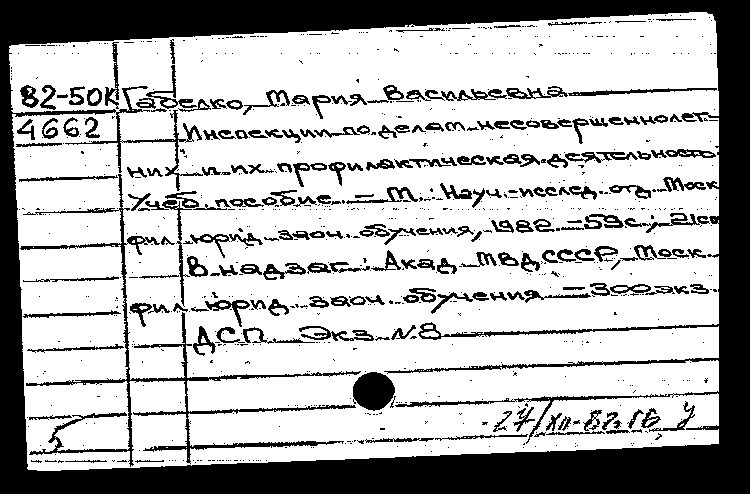 82-50К Габелко, Мария Васильевна
4662 Инспекции по делам несовершеннолет-
них и их профилактическая деятельность.
Учеб. пособие. – М.: Науч.-исслед. отд. Моск
фил. юрид. заоч. обучения, 1982. – 59с.; 21см
В надзаг.: Акад. МВД СССР, Моск.
фил. юрид. заоч. обучения – 300 экз.
ДСП. Экз. N.8
5 27/XII-82.